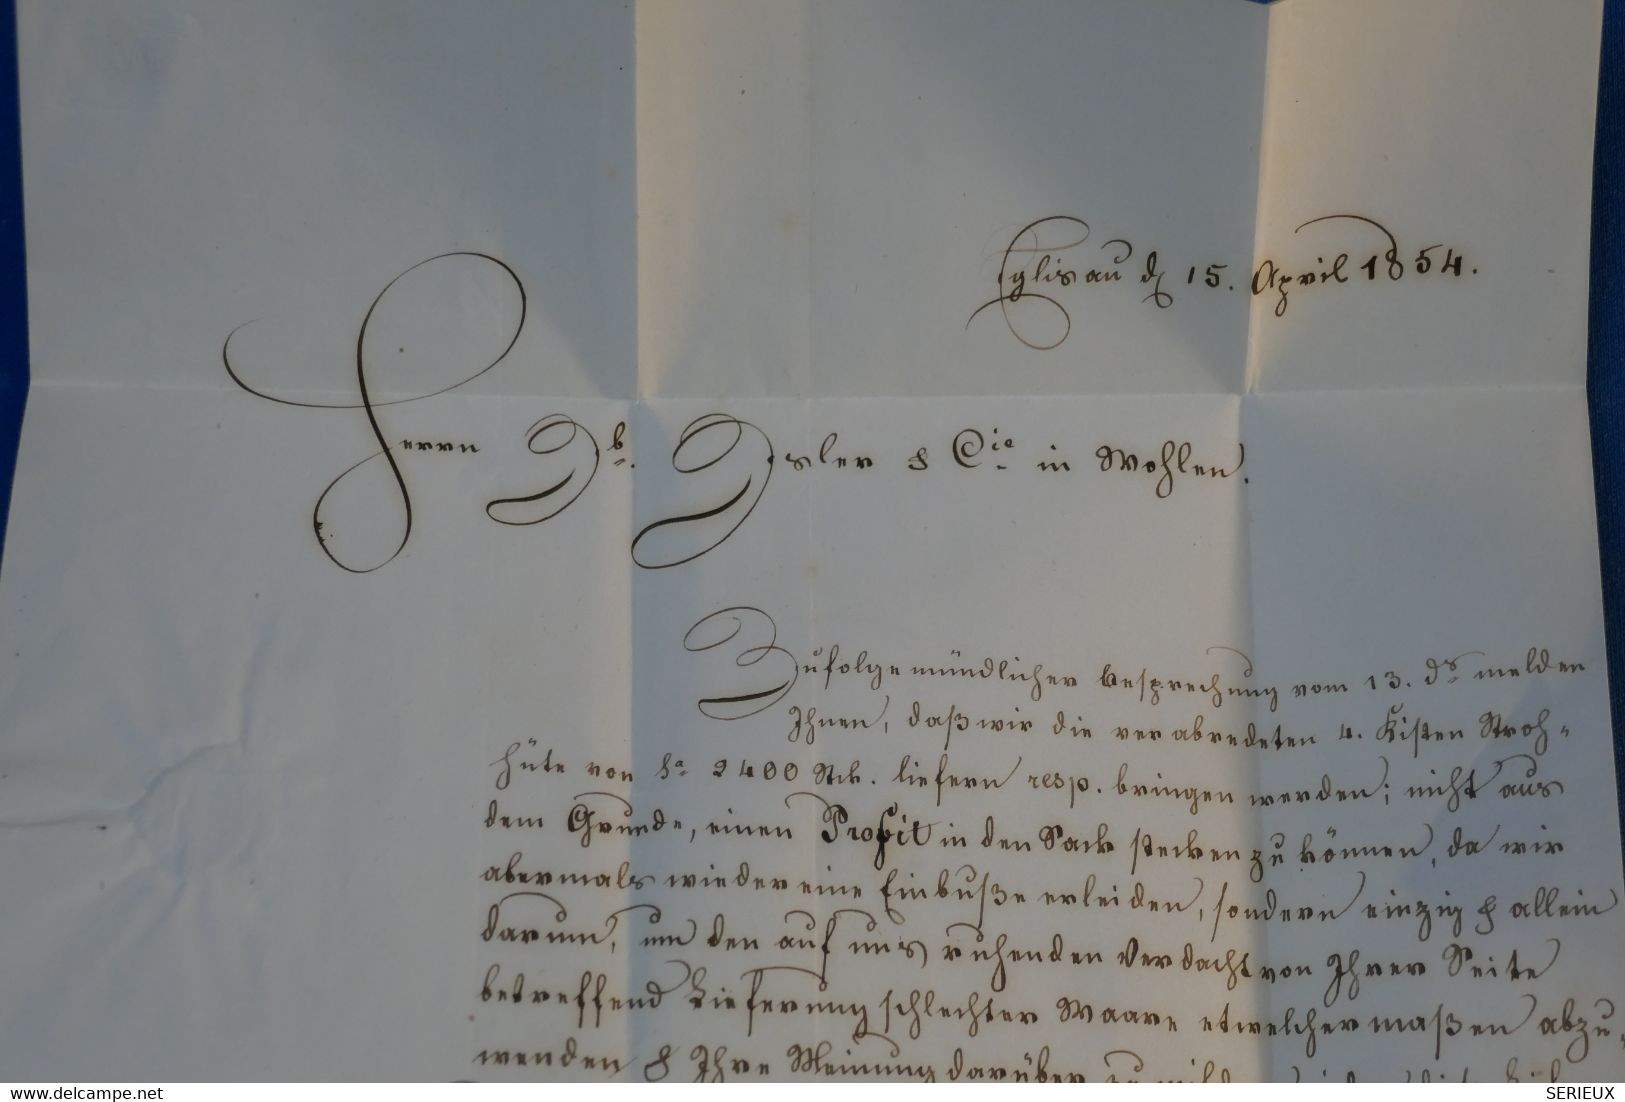 Eglisau d. 15. April 1854.
Herrn Jb. Isler & Cie. in Wohlen.
Zufolge mündlicher Besprechung vom 13. ds. melden
Ihnen, daß wir die verabredeten 4. Kisten Stroh-
hüte von 2400 Stck. liefern resp. bringen werden; nicht aus
dem Grunde, einen Profit in den Sack stecken zu können, da wir
abermals wieder eine Einbuße erleiden, sondern einzig & allein
darum, um den auf uns ruhenden Verdacht von Ihrer Seite
betreffend Lieferung schlechter Waare etwelchermaßen abzu-
wenden & Ihre Meinung darüber zu
www.delcampe.net
SERIEUX